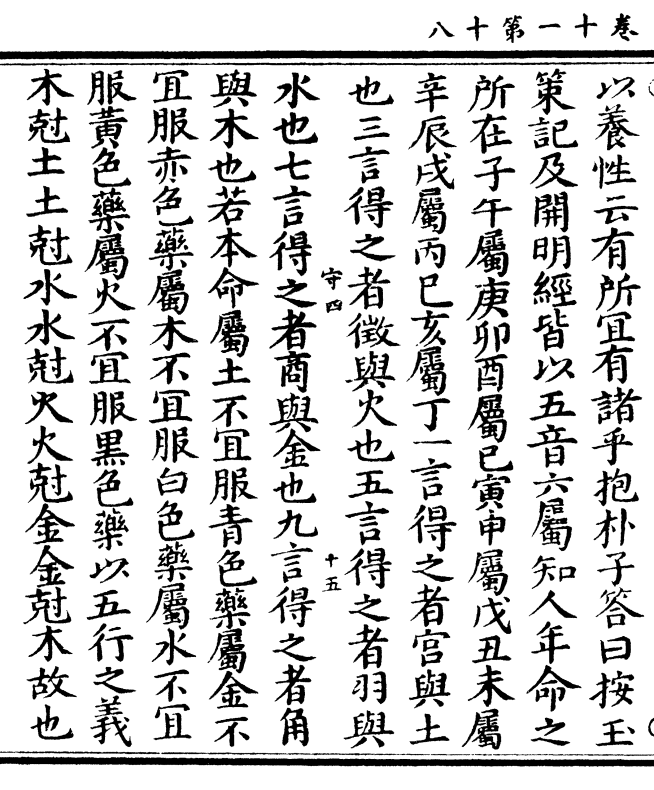 卷十一第十八
以養性云有所冝有諸乎抱朴子答曰按玉
策記及開明經皆以五音六屬知人年命之
所在子午屬庚卯酉屬巳寅申屬戊丑未屬
辛辰戌屬丙巳亥屬丁一言得之者宫與土
也三言得之者徵與火也五言得之者羽與
守四
十五
水也七言得之者商與金也九言得之者角
與木也若本命屬土不冝服青色藥屬金不
冝服赤色藥屬木不冝服白色藥屬水不冝
服黃色藥屬火不冝服黒色藥以五行之義
木尅土土尅水水尅火火尅金金尅木故也